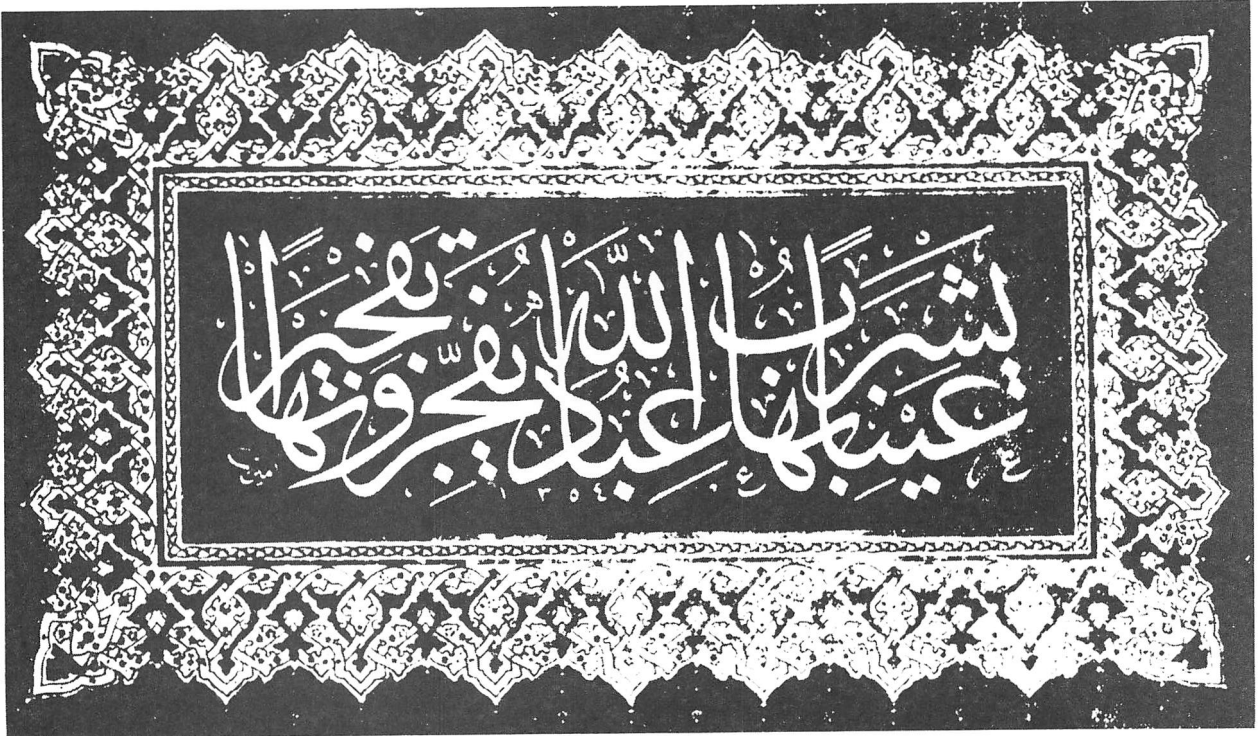 عينا يشرب بها عباد الله يفجرونها تفجيرا
١٣٥٤